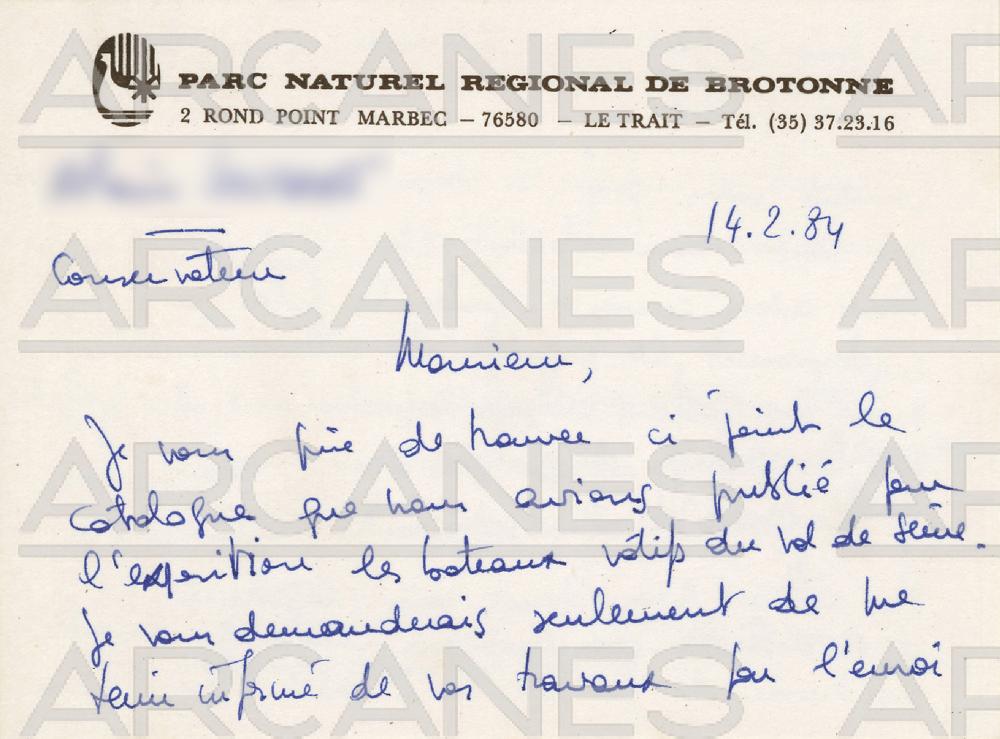 PARC NATUREL REGIONAL DE BROTONNE
2 ROND POINT MARBEC – 76580 – LE TRAIT – Tél. (35) 37.23.16
14.2.84
Conservateur
Monsieur,
Je vous prie de trouver ci joint le
catalogue que nous avions publié pour
l'exposition les bateaux votifs du val de Seine.
Je vous demanderais seulement de me
tenir informé de vos travaux par l'envoi
ARCANES ARCANES ARCANES ARCANES